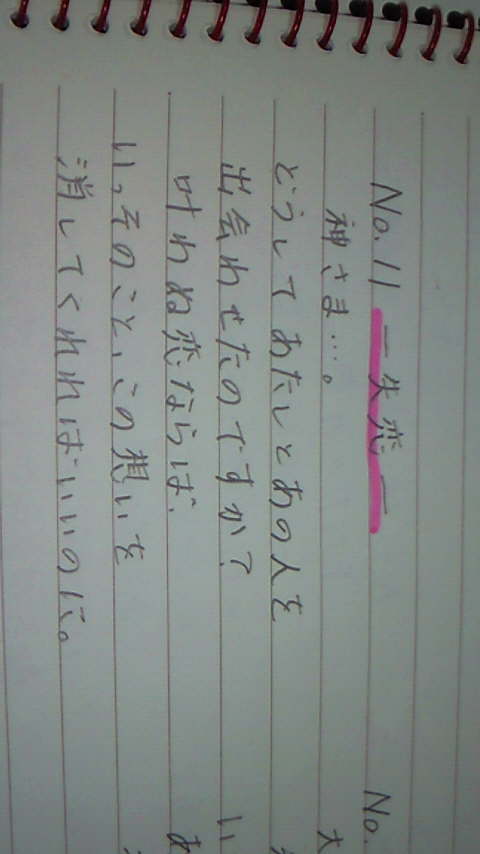 No.11 ー失恋ー
神さま…。
どうしてあたしとあの人を
出会わせたのですか?
叶わぬ恋ならば、
いっそのこと、この想いを
消してくれればいいのに。
No.
大
い
あ